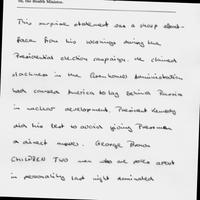 to, the Health Minister.
This surprise statement was a sharp about-
face from his warnings during the
Presidential election campaign. He claimed
slackness in the Eisenhower Administration
had caused America to lag behind Russia
in nuclear development. President Kennedy
did his best to avoid giving Pressmen
a direct answer. George Brown
CHILDREN TWO men who are poles apart
in personality last night dominated